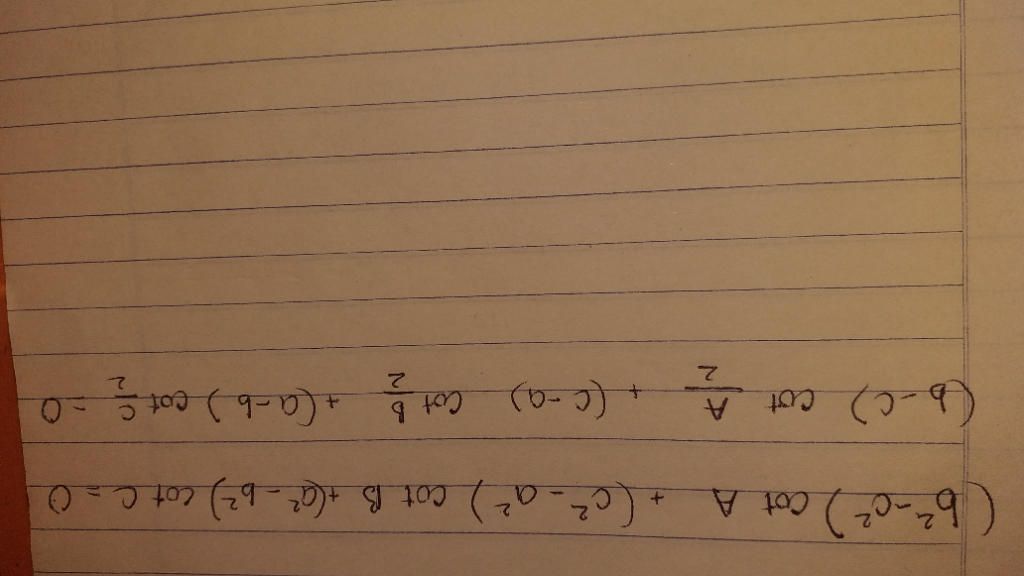 (b²-c²) cot A + (c²-a²) cot B + (a²-b²) cot C = 0
(b-c) cot A/2 + (c-a) cot b/2 + (a-b) cot C/2 = 0